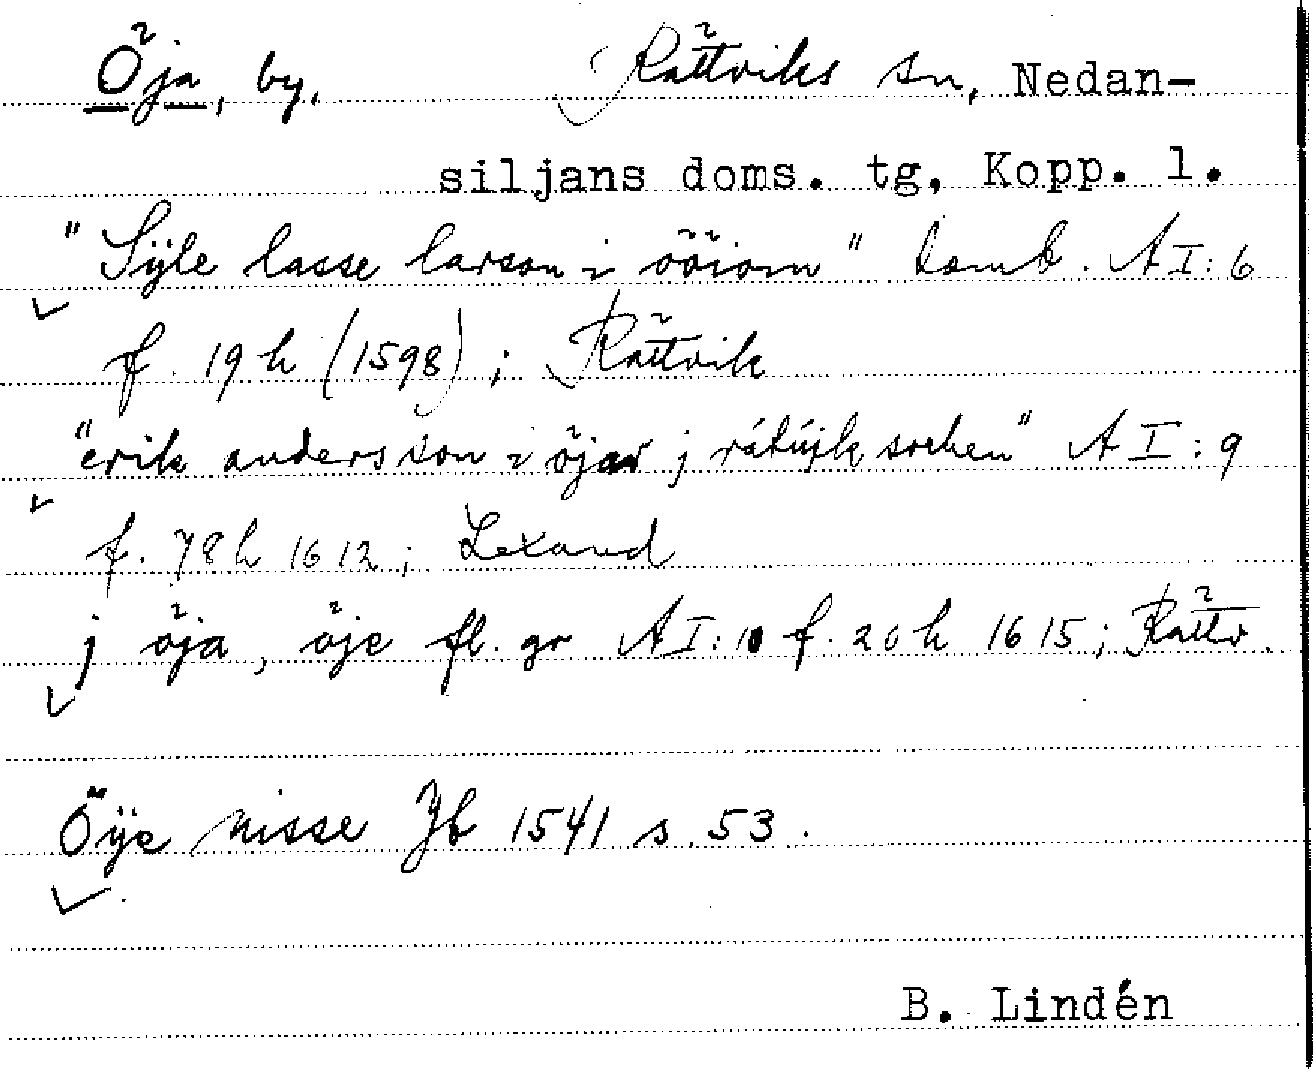 Öja, by, Rättviks sn, Nedan-
siljans doms. tg, Kopp. l.
"Sÿle lasse larson i ööiom" domb. A I: 6
f. 19 h (1598); Rättvik
"erik andersson i öjar j rätújk sochen" A I: 9
f. 78 h 1612; Lexand
j öja, öje fl. gr A I: 10 f. 20 h 1615; Rättv.
Öÿe nisse Jb 1541 s. 53.
B. Lindén